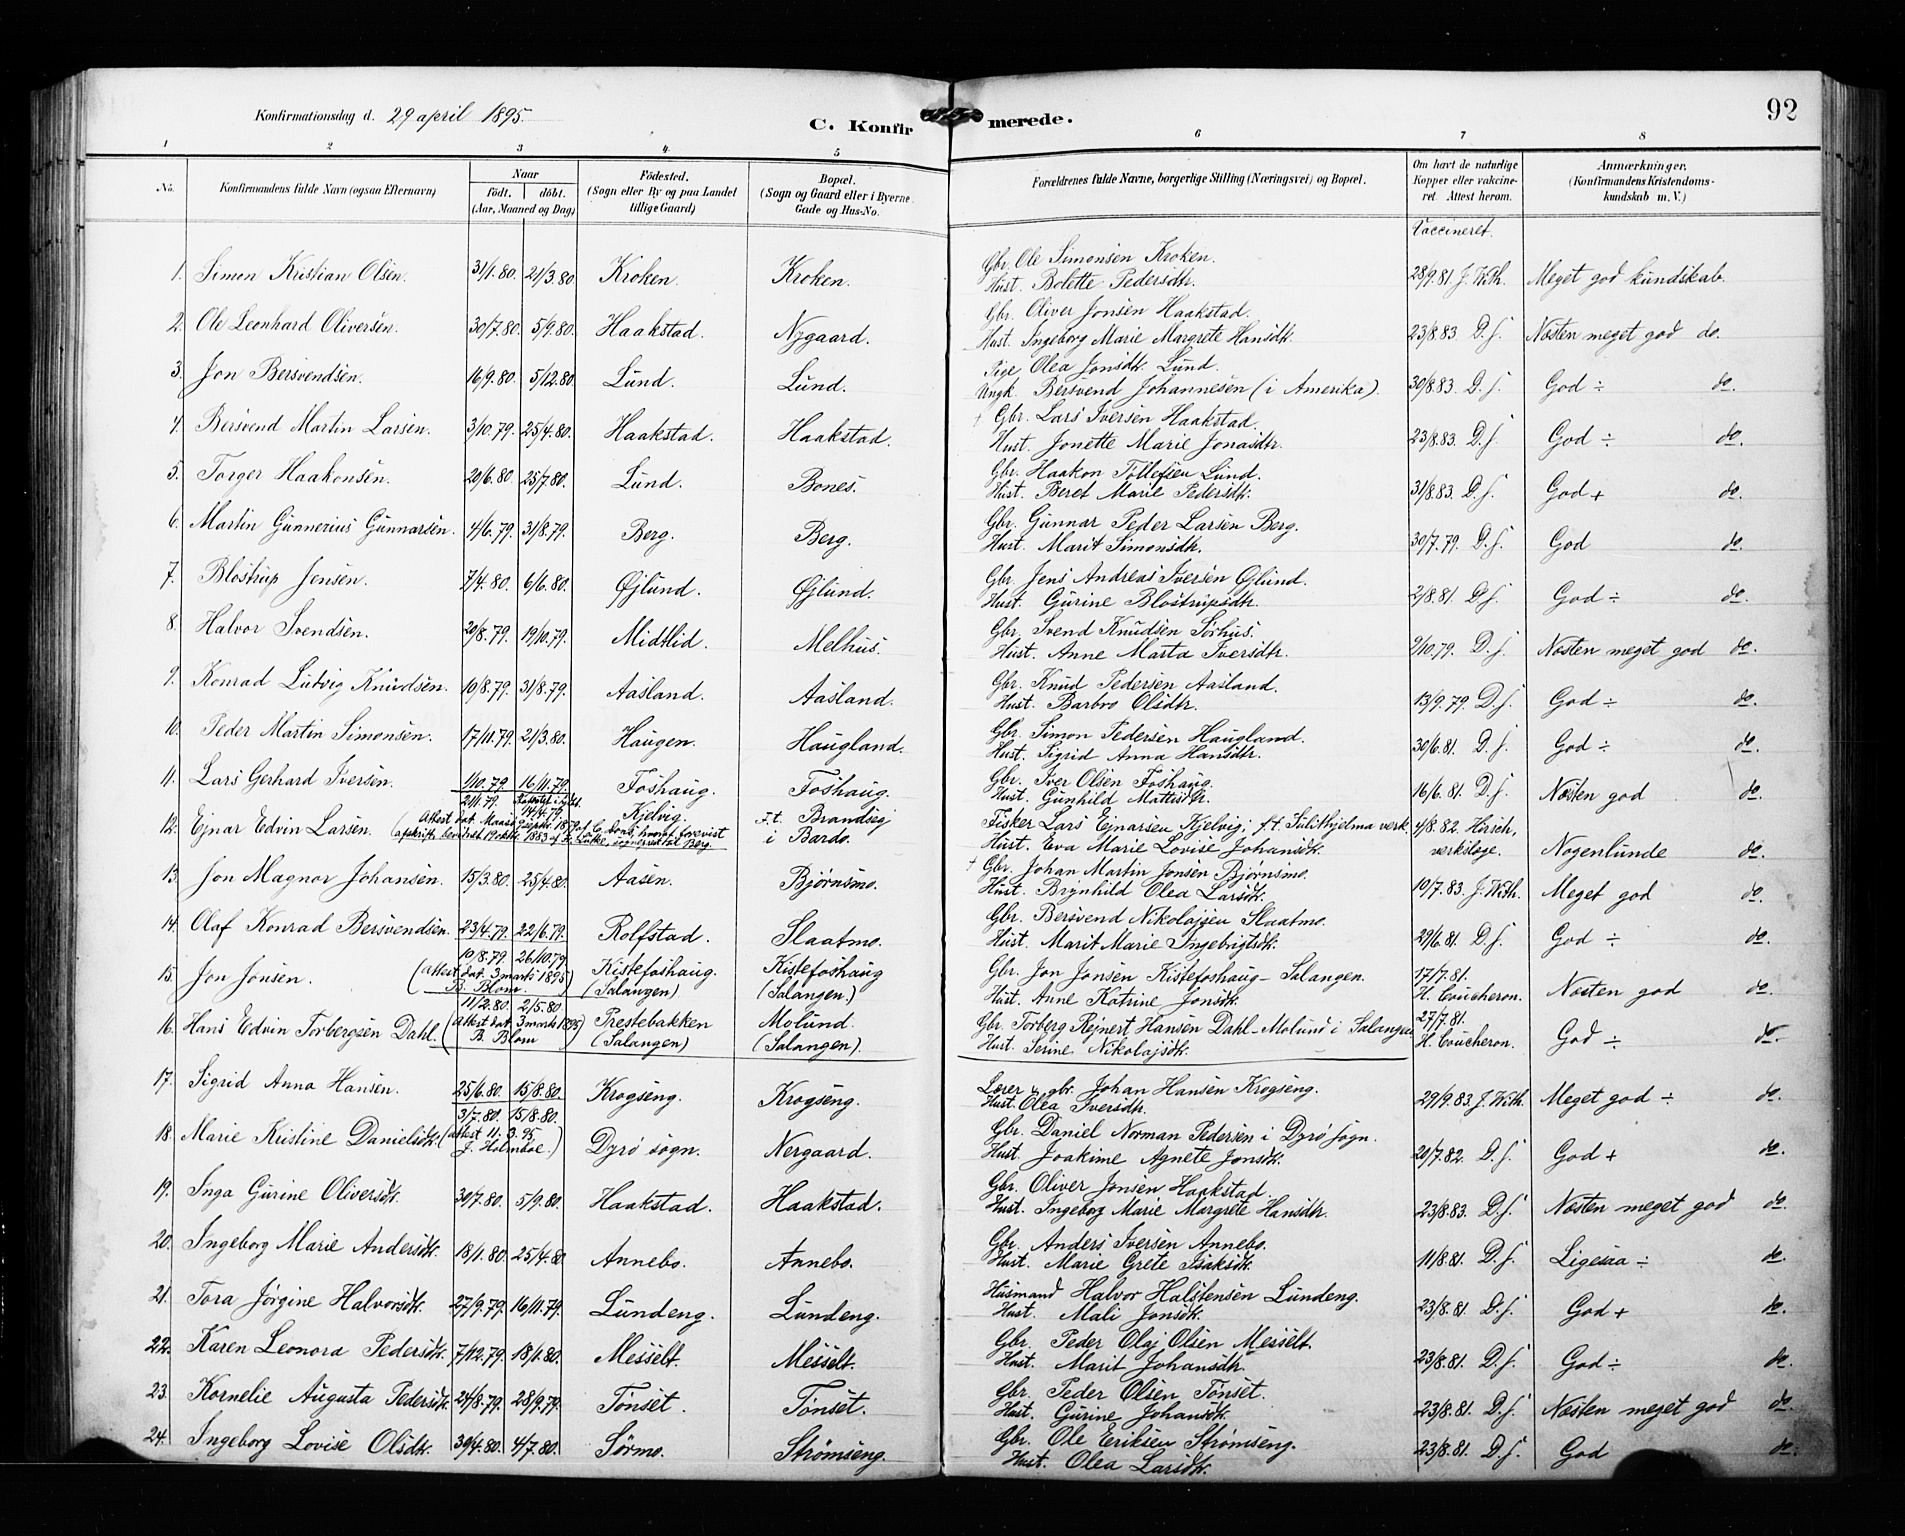 92
Konfirmationsdag d. 29 april 1895.
C. Konfirmerede.
1 2 3 4 5 6 7 8
No. Konfirmandens fulde Navn (ogsaa Efternavn) Naar født. døbt. (Aar, Maaned og Dag) Fødested. (Sogn eller By og paa Landet tillige Gaard) Bopæl. (Sogn og Gaard eller i Byerne Gade og Hus-No. Forældrenes fulde Navne, borgerlige Stilling (Næringsvei) og Bopæl. Om havt de naturlige Kopper eller vakcineret. Attest herom. Anmærkninger. (Konfirmandens Kristendomskundskab m. V.)
Vaccineret.
1. Simon Kristian Olsen. 31/1.80. 21/3.80. Kroken. Kroken. Gbr. Ole Simonsen Kroken. 28/9.81. J. With. Meget god kundskab.
Hust. Bolette Pedersdtr.
2. Ole Leonhard Oliversen. 30/7.80. 5/9.80. Haakstad. Nygaard. Gbr. Oliver Jonsen Haakstad. 23/8.83. D.s. Næsten meget god do.
Hust. Ingeborg Marie Margrete Hansdtr.
3. Jon Bersvendsen. 16/9.80. 5/12.80. Lund. Lund. Pige Olea Jonsdtr. Lund. 30/8.83. D.s. God ÷ do.
Ungk. Bersvend Johannesen (i Amerika).
4. Bersvend Martin Larsen. 3/10.79. 25/4.80. Haakstad. Haakstad. + Gbr. Lars Iversen Haakstad. 23/8.83. D.s. God ÷ do.
Hust. Jonette Marie Jonasdtr.
5. Torger Haakonsen. 20/6.80. 25/7.80. Lund. Bones. Gbr. Haakon Tollefsen Lund. 31/8.83. D.s. God + do.
Hust. Beret Marie Pedersdtr.
6. Martin Gunnerius Gunnarsen. 4/6.79. 31/8.79. Berg. Berg. Gbr. Gunnar Peder Larsen Berg. 30/7.79. D.s. God do.
Hust. Marit Simonsdtr.
7. Blostrup Jensen. 7/4.80. 6/6.80. Øjlund. Øjlund. Gbr. Jens Andreas Iversen Øjlund. 2/8.81. D.s. God ÷ do.
Hust. Gurine Blostrupsdtr.
8. Halvor Svendsen. 20/8.79. 19/10.79. Midtlid. Melhus. Gbr. Svend Knudsen Sørhus. 9/10.79. D.s. Næsten meget god do.
Hust. Anne Marta Iversdtr.
9. Konrad Ludvig Knudsen. 10/8.79. 31/8.79. Aasland. Aasland. Gbr. Knud Pedersen Aasland. 13/9.79. D.s. God ÷ do.
Hust. Barbro Olsdtr.
10. Peder Martin Simonsen. 17/11.79. 21/3.80. Haugen. Haugland. Gbr. Simon Pedersen Haugland. 30/6.81. D.s. God ÷ do.
Hust. Sigrid Anna Hansdtr.
11. Lars Gerhard Iversen. 1/10.79. 16/11.79. Foshaug. Foshaug. Gbr. Iver Olsen Foshaug. 16/6.81. D.s. Næsten god do.
Hust. Gunhild Mattisdtr.
12. Ejnar Edvin Larsen. Kjelvig. F.t. Brandseg i Bardo. Fisker Lars Ejnarsen Kjelvig; f.t. Sulithjelma verk. 4/8.82. Hirsch, værkslæge. Nogenlunde do.
Hust. Eva Marie Lovise Johansdtr.
13. Jon Magnor Johansen. 15/3.80. 25/4.80. Aasen. Bjørnsmo. + Gbr. Johan Martin Jonsen Bjørnsmo. 10/7.83. J. With. Meget god do.
Hust. Brynhild Olea Larsdtr.
14. Olaf Konrad Bersvendsen. 23/4.79. 22/6.79. Rolfstad. Slaatmo. Gbr. Bersvend Nikolajsen Slaatmo. 29/6.81. D.s. God ÷ do.
Hust. Marit Marie Ingebrigtsdtr.
15. Jon Jonsen. 10/8.79 26/10.79. (Attest dat. 3 marts 1895 B. Blom.) Kistefoshaug. (Salangen) Kistefoshaug (Salangen.) Gbr. Jon Jonsen Kistefoshaug - Salangen. 17/7.81. H. Coucheron. Næsten god do.
Hust. Anne Katrine Jonsdtr.
16. Hans Edvin Torbergsen Dahl. 11/2.80. 2/5.80. (Attest dat. 3 marts 1895 B. Blom) Prestebakken (Salangen) Molund. (Salangen). Gbr. Torberg Rejnert Hansen Dahl - Molund i Salangen 27/7.81. H. Coucheron. God ÷ do.
Hust. Serine Nikolajsdtr.
17. Sigrid Anna Hansen. 25/6.80. 15/8.80. Krogseng. Krogseng. Lærer & gbr. Johan Hansen Krogseng. 29/9.83. J. With. Meget god ÷ do.
Hust. Olea Iversdtr.
18. Marie Kristine Danielsdtr. 3/7.80. 15/8.80. (Attest 11.3.95. J. Holmboe.) Dyrø sogn. Nergaard. Gbr. Daniel Norman Pedersen i Dyrø sogn. 20/7.82. D.s. God + do.
Hust. Joakime Agnete Jonsdtr.
19. Inga Gurine Oliversdtr. 30/7.80. 5/9.80. Haakstad. Haakstad. Gbr. Oliver Jonsen Haakstad. 23/8.83. D.s. Næsten meget god do.
Hust. Ingeborg Marie Margrete Hansdtr.
20. Ingeborg Marie Andersdtr. 18/1.80. 25/4.80. Annebo. Annebo. Gbr. Anders Iversen Annebo. 11/8.81. D.s. Ligesaa ÷ do.
Hust. Marie Grete Isaksdtr.
21. Tora Jørgine Halvorsdtr. 27/9.79. 16/11.79. Lundeng. Lundeng. Husmand Halvor Halstensen Lundeng. 23/8.81. D.s. God + do.
Hust. Mali Jonsdtr.
22. Karen Leonora Pedersdtr. 7/12.79. 18/1.80. Messelt. Messelt. Gbr. Peder Olaj Olsen Messelt. 23/8.81. D.s. God ÷ do.
Hust. Marit Johansdtr.
23. Kornelie Augusta Pedersdtr. 24/8.79. 28/9.79. Tønset. Tønset. Gbr. Peder Olsen Tønset. 23/8.81. D.s. Næsten meget god do.
Hust. Gurine Johansdtr.
24. Ingeborg Lovise Olsdtr. 30/4.80. 4/7.80. Sørmo. Strømseng. Gbr. Ole Eriksen Strømseng. 23/8.81. D.s. God do.
Hust. Olea Larsdtr.